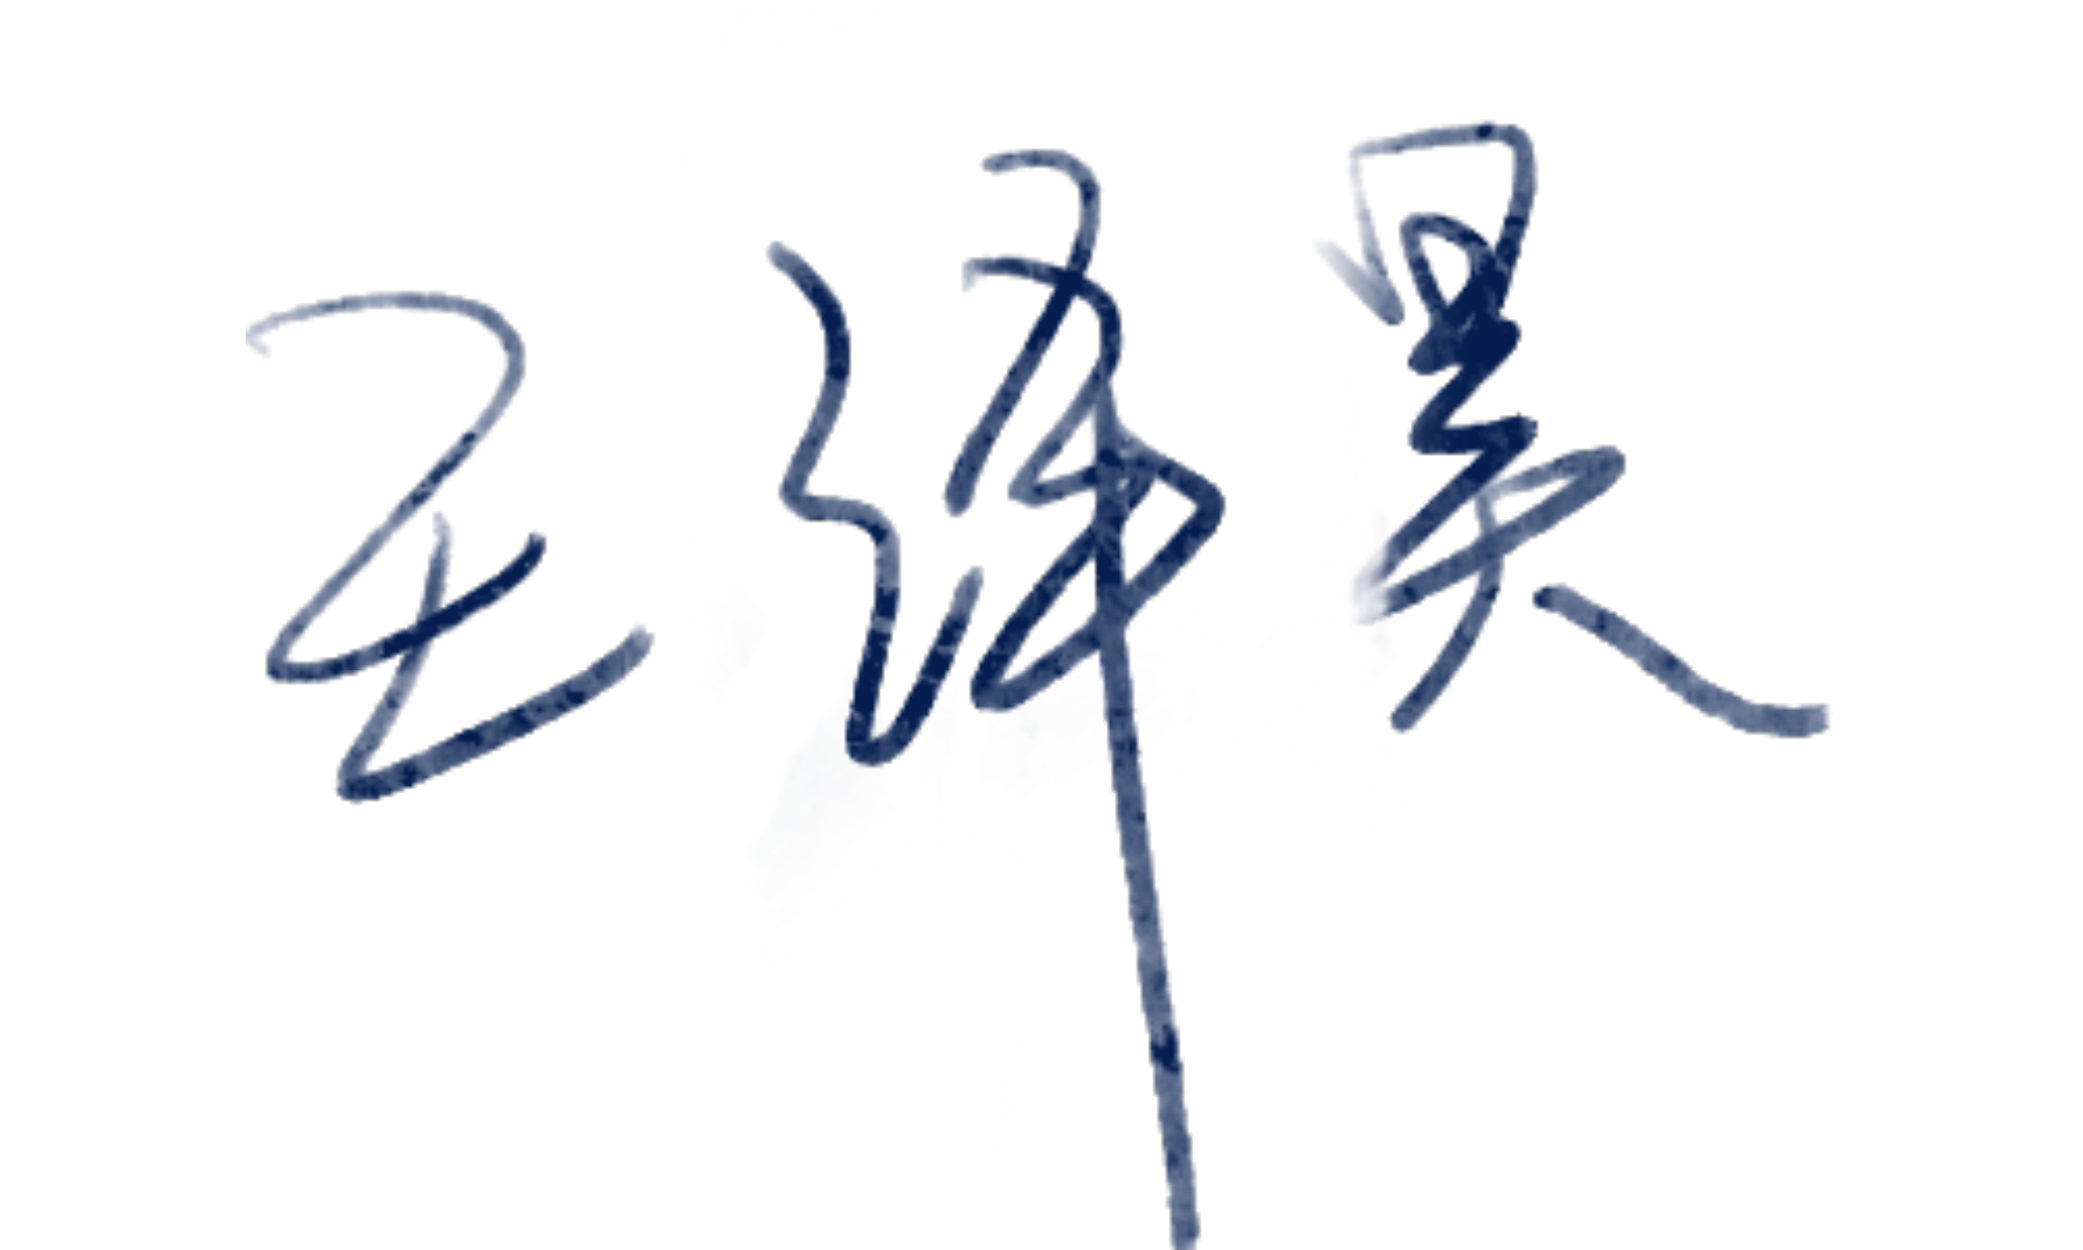 王泽昊